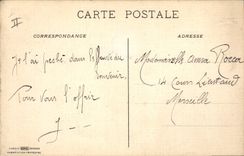 II
CARTE POSTALE
CORRESPONDANCE
ADRESSE
Je l'ai pêché dans
souvenir.
Pour vous l'offrir
J
Mademoiselle Anna Rocca
14 Cours Lieutaud
Marseille